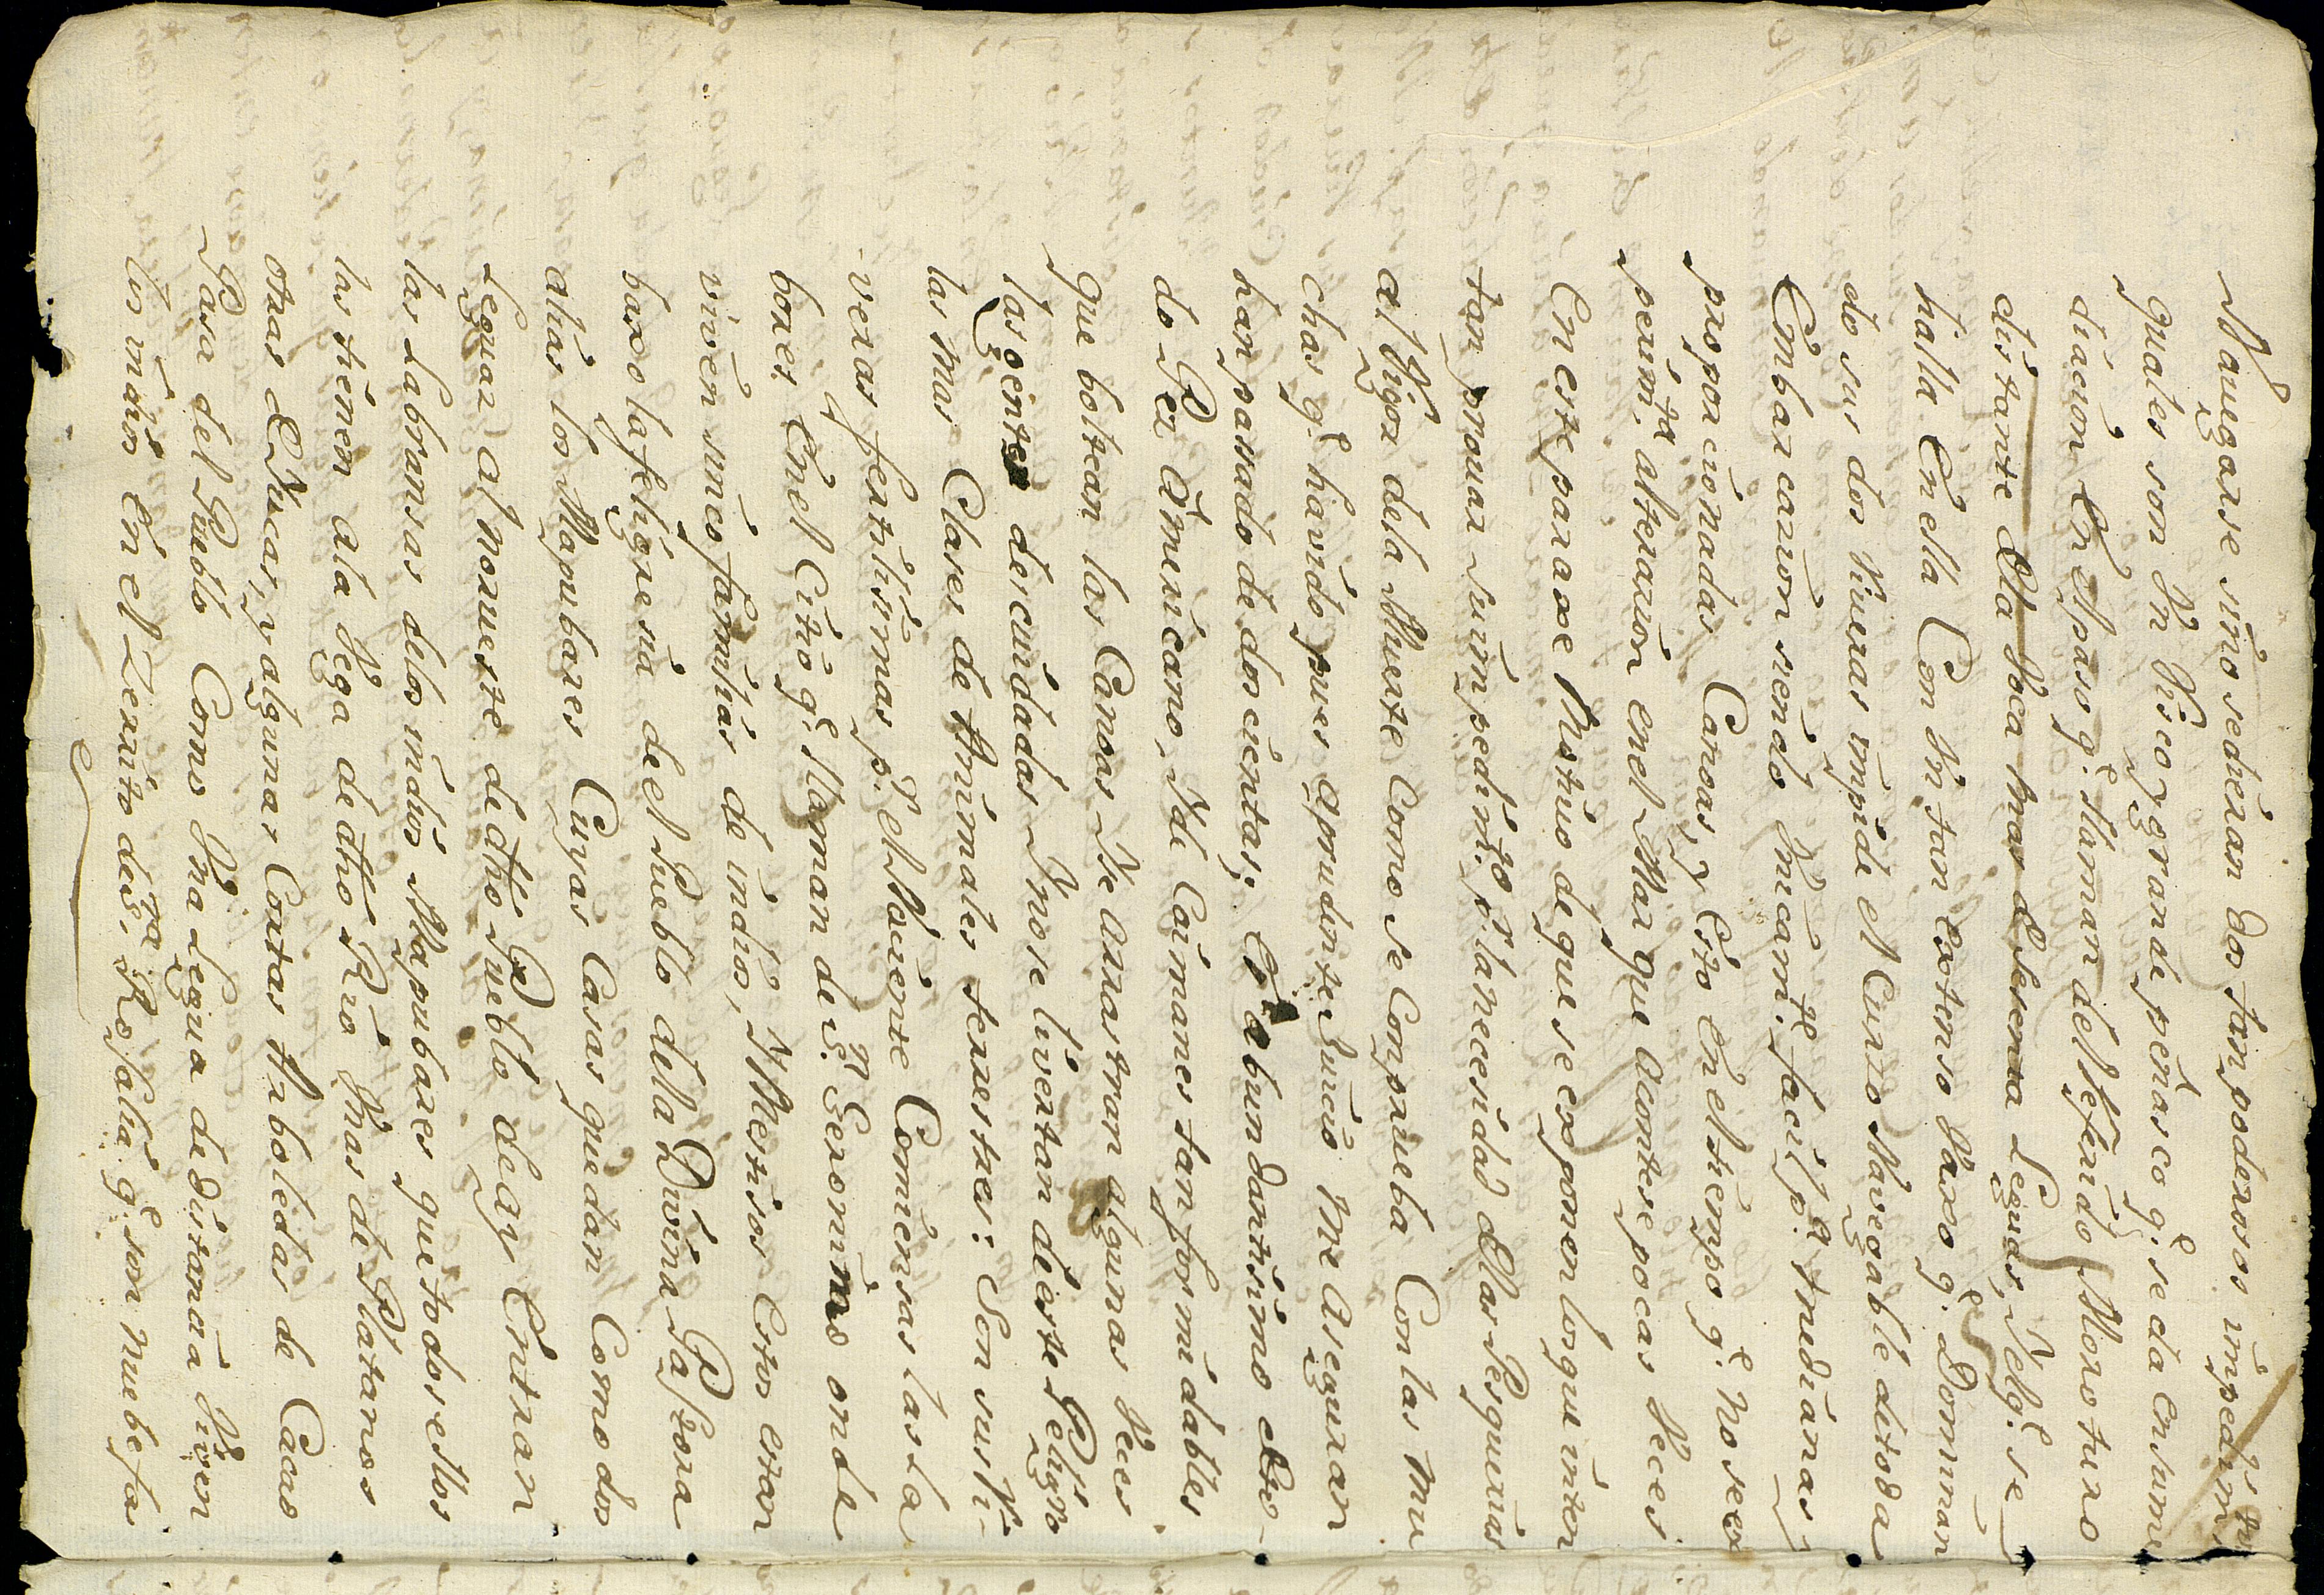 Nauegarse sino sedieran dos tan poderosos impedim.tos
quales son Un Risco, y grande peñasco q.e se da en su me
diacion En el paso q.e llaman del Referido Monoturo
distante Ela boca mas de sesenta Leguas, Y el q.e se
halla En ella Con Un tan Extenso Vaxo q.e Dominan
do sus dos Riueras impide el Curso Nauegable de toda
Embarcacion siendo Unicam.te facil p.a medianas
proporcionadas Canoas, y Esto En el tiempo q.e no se ex
perim.ta alteracion en el Mar que acontese pocas Veces
En este paraxe Motiuo de que se exponen los que inten
tan prouar su impedim.to p.r la necesidad de las Pesquerias
al Rigor de la Muerte como se Comprueba Con las mu
chas q.e hauido pues aprudente Juicio me aseguran
han pasado de docientas; Es abundantisimo dho
do Rio Amucano, Y de Caimanes tan formidables
que boltean las Canoas Y se arrastran algunas Veces
las gentes descuidadas Y no se livertan de este Peligro
las mas Clases de Animales terrestres: Son sus Ri-
veras fertilisimas p.r el Naciente Comiensas las la
bores En el Citio q.e llaman de S.n Geronimo onde
viven unico familias de indios, Y Mestisos Estos estan
baxo la feligresia de el Pueblo de la Diuina Pastora
alias los Mapubares Cuyas Casas quedan Como dos
Leguas al norueste de dho Pueblo de ay Entran
las Labransas de los indios Mapubares que todos ellos
las tienen ala Vega de dho Rio Unas de Platanos
otras de Yucas, y algunas Cortas Arboledas de Cacao
Pasa del Pueblo Como Una Legua de Distancia Viven
los indios En el Zerrito de S.ta Rosalia q.e son nueue fa